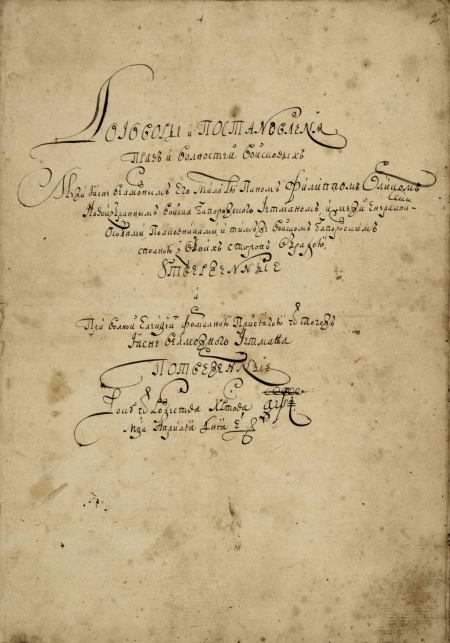 Договоры и постановленя
правъ и волностей войсковыхъ
Межи Ясне велможнымъ Его Млстю Паномъ Филиппомъ Орликомъ
Новоизбраннымъ войска Запорожского Гетманомъ, и межи Енералными
Особами Полковниками и тимъ жъ войскомъ Запорожскимъ
сполною з обоихъ сторонъ обрадою
Утверженныіе
и
При волной Елекціи формалною Присягою ѿ тогожъ
Ясне велможного Гетмана
Потверженныіе
Року ѿ Рождества Хстова ҂аѱı
Мця Априлія дня е
2